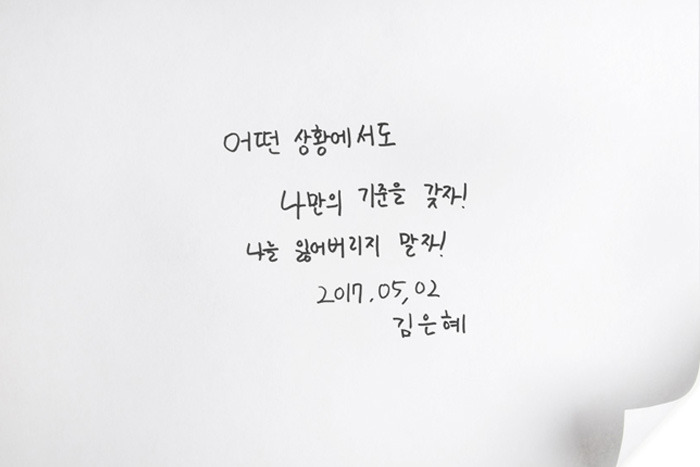 어떤 상황에서도
나만의 기준을 갖자!
나를 잃어버리지 말자!
2017.05,02
김은혜